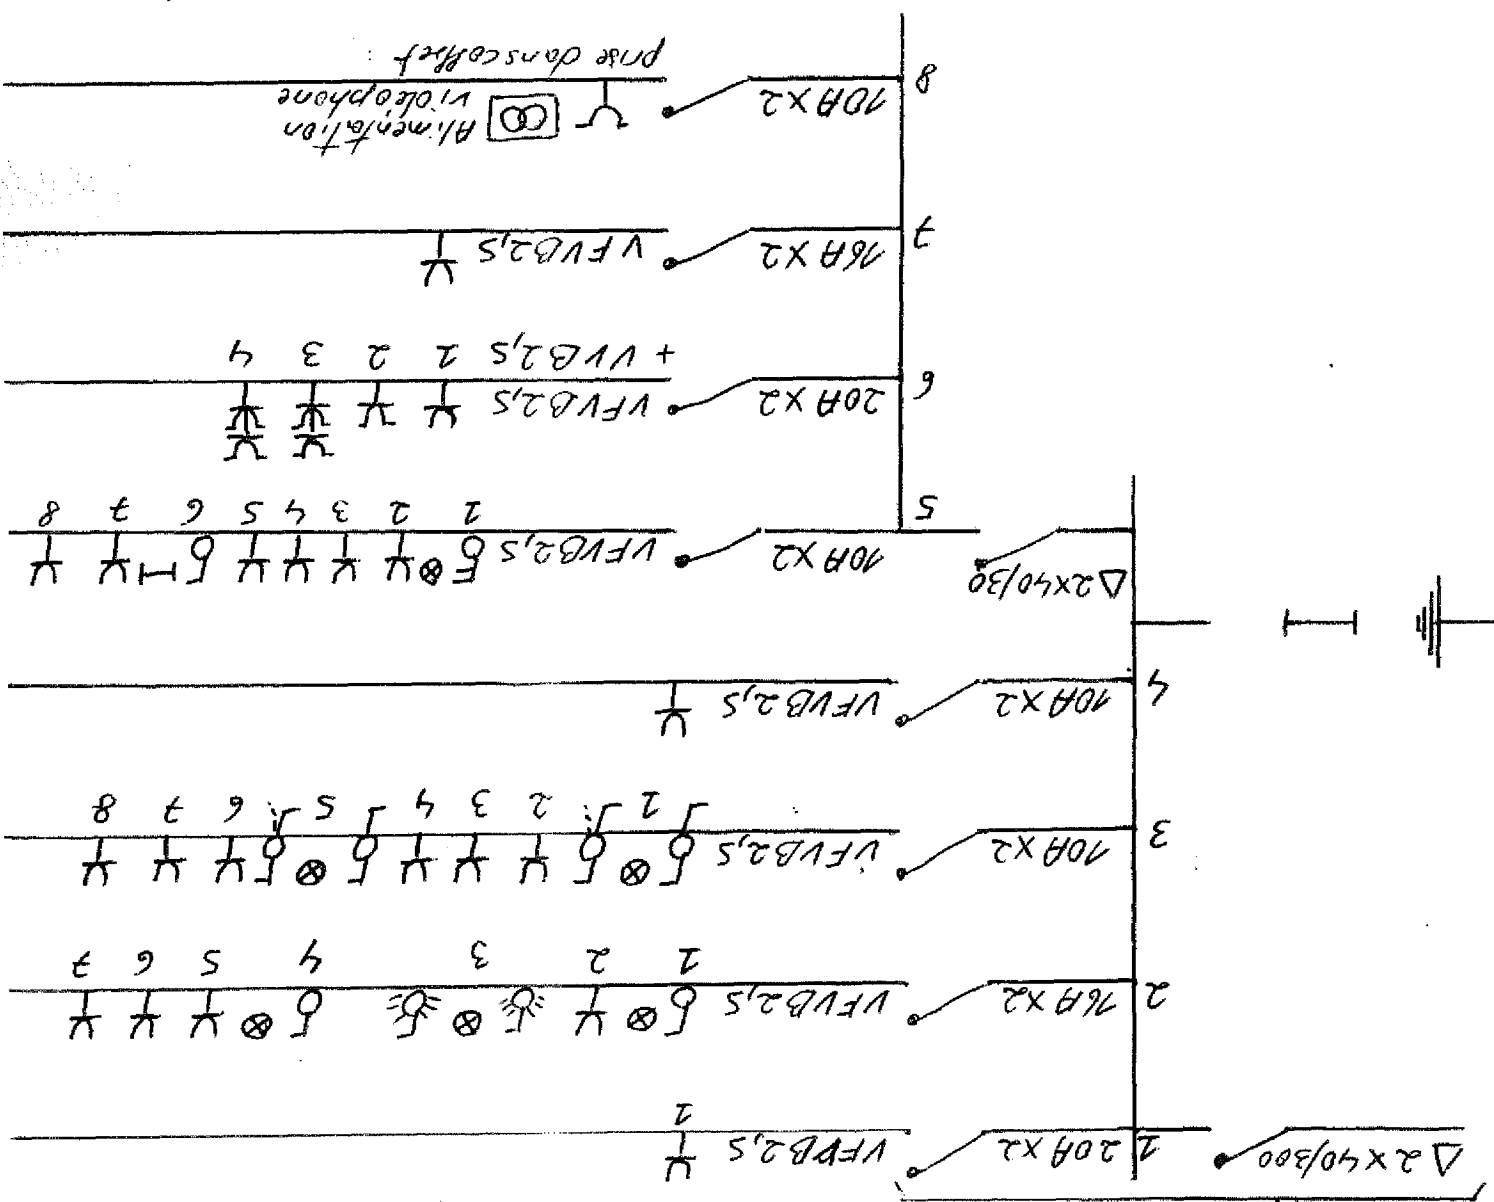 Δ 2x40/300 1 20A x2 VFVB2,5
1
2 16A x2 VFVB2,5
1 2 3 4 5 6 7
3 10A x2 VFVB2,5
1 2 3 4 5 6 7 8
4 10A x2 VFVB2,5
Δ2x40/30 10A x2 VFVB2,5
5 1 2 3 4 5 6 7 8
6 20A x2 VFVB2,5
+ VVB2,5 1 2 3 4
7 16A x2 VFVB2,5
8 10A x2
Alimentation
vidéophone
prise dans coffret